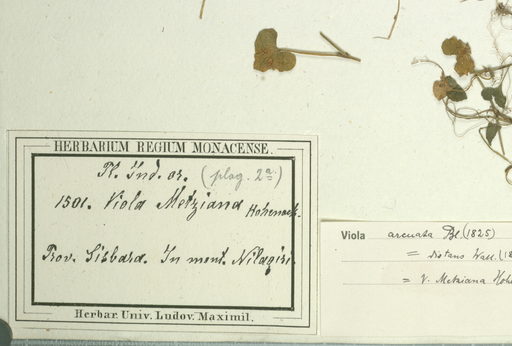 HERBARIUM REGIUM MONACENSE.
Pl. Ind. or. (plag. 2a.)
1501. Viola Metziana Hohenack.
Prov. Sisbara. In mont. Nilagiri.
Herbar. Univ. Ludov. Maximil.
Viola arcuata Bl. (1825)
= distans Wall. (18
= V. Metziana Hohe